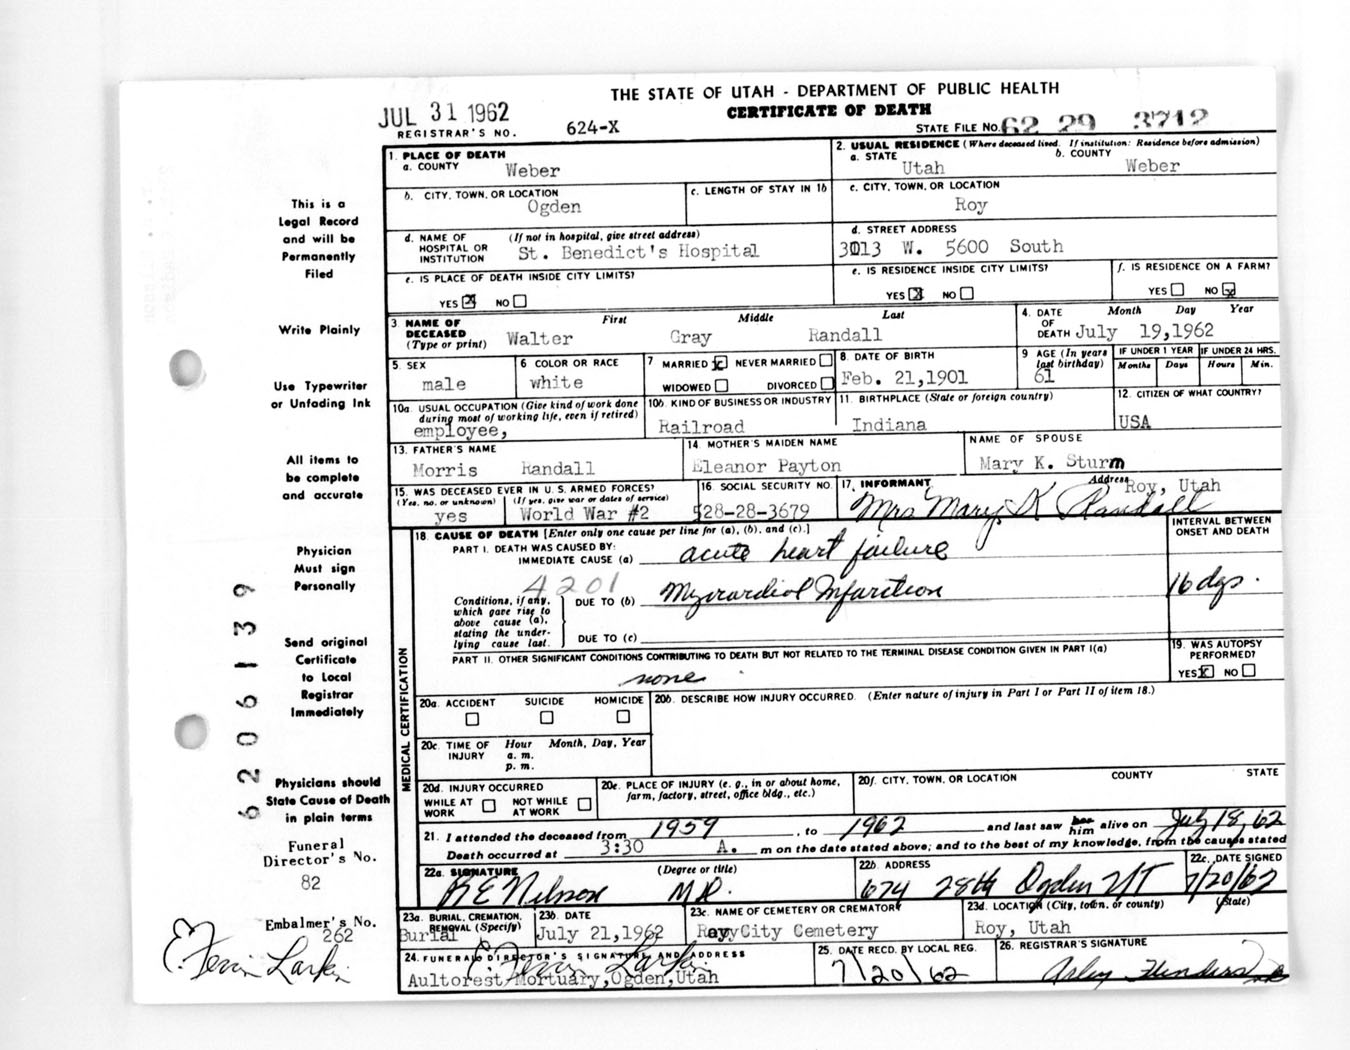 THE STATE OF UTAH - DEPARTMENT OF PUBLIC HEALTH
CERTIFICATE OF DEATH
JUL 31 1962
REGISTRAR'S NO. 624-X
STATE FILE No. 62 29 3712
1. PLACE OF DEATH
a. COUNTY Weber
2. USUAL RESIDENCE (Where deceased lived. If institution: Residence before admission)
a. STATE Utah b. COUNTY Weber
b. CITY, TOWN, OR LOCATION Ogden
c. LENGTH OF STAY IN 1b
c. CITY, TOWN, OR LOCATION Roy
d. NAME OF HOSPITAL OR INSTITUTION (If not in hospital, give street address) St. Benedict's Hospital
d. STREET ADDRESS 3013 W. 5600 South
e. IS PLACE OF DEATH INSIDE CITY LIMITS?
YES X NO
e. IS RESIDENCE INSIDE CITY LIMITS?
YES X NO
f. IS RESIDENCE ON A FARM?
YES NO X
3 NAME OF DECEASED (Type or print) First Middle Last
Walter Gray Randall
4. DATE OF DEATH Month Day Year
July 19,1962
5. SEX male
6 COLOR OR RACE white
7 MARRIED X NEVER MARRIED
WIDOWED DIVORCED
8. DATE OF BIRTH Feb. 21,1901
9 AGE (In years last birthday) 61
IF UNDER 1 YEAR Months Days
IF UNDER 24 HRS. Hours Min.
10a. USUAL OCCUPATION (Give kind of work done during most of working life, even if retired)
employee,
10b. KIND OF BUSINESS OR INDUSTRY Railroad
11. BIRTHPLACE (State or foreign country) Indiana
12. CITIZEN OF WHAT COUNTRY? USA
13. FATHER'S NAME Morris Randall
14. MOTHER'S MAIDEN NAME Eleanor Payton
NAME OF SPOUSE Mary K. Sturm
15. WAS DECEASED EVER IN U. S. ARMED FORCES?
(Yes, no, or unknown) (If yes, give war or dates of service)
yes World War #2
16 SOCIAL SECURITY NO. 528-28-3679
17. INFORMANT Address Roy, Utah
Mrs Mary K Randall
18. CAUSE OF DEATH [Enter only one cause per line for (a), (b), and (c).]
INTERVAL BETWEEN ONSET AND DEATH
PART I. DEATH WAS CAUSED BY:
IMMEDIATE CAUSE (a) acute heart failure
4201
Conditions, if any, which gave rise to above cause (a), stating the underlying cause last.
DUE TO (b) Myocardial Infarction 16 dys.
DUE TO (c)
PART II. OTHER SIGNIFICANT CONDITIONS CONTRIBUTING TO DEATH BUT NOT RELATED TO THE TERMINAL DISEASE CONDITION GIVEN IN PART I(a)
none
19. WAS AUTOPSY PERFORMED?
YES X NO
MEDICAL CERTIFICATION
20a. ACCIDENT SUICIDE HOMICIDE
20b. DESCRIBE HOW INJURY OCCURRED. (Enter nature of injury in Part I or Part II of item 18.)
20c. TIME OF INJURY Hour a. m. p. m. Month, Day, Year
20d. INJURY OCCURRED
WHILE AT WORK NOT WHILE AT WORK
20e. PLACE OF INJURY (e. g., in or about home, farm, factory, street, office bldg., etc.)
20f. CITY, TOWN, OR LOCATION COUNTY STATE
21. I attended the deceased from 1959, to 1962 and last saw her him alive on July 18, 62
Death occurred at 3:30 A. m on the date stated above; and to the best of my knowledge, from the causes stated
22a. SIGNATURE (Degree or title)
R E Nilson M.D.
22b. ADDRESS
674 28th Ogden UT
22c. DATE SIGNED
7/20/62
23a. BURIAL, CREMATION, REMOVAL (Specify) Burial
23b. DATE July 21,1962
23c. NAME OF CEMETERY OR CREMATORY Roy City Cemetery
23d. LOCATION (City, town, or county) (State)
Roy, Utah
24. FUNERAL DIRECTOR'S SIGNATURE AND ADDRESS
E. Fenn Larkin
Aultorest Mortuary, Ogden, Utah
25. DATE RECD. BY LOCAL REG.
7/20/62
26. REGISTRAR'S SIGNATURE
This is a
Legal Record
and will be
Permanently
Filed
Write Plainly
Use Typewriter
or Unfading Ink
All items to
be complete
and accurate
Physician
Must sign
Personally
Send original
Certificate
to Local
Registrar
Immediately
Physicians should
State Cause of Death
in plain terms
Funeral
Director's No.
82
Embalmer's No.
262
E. Fenn Larkin
62 206139